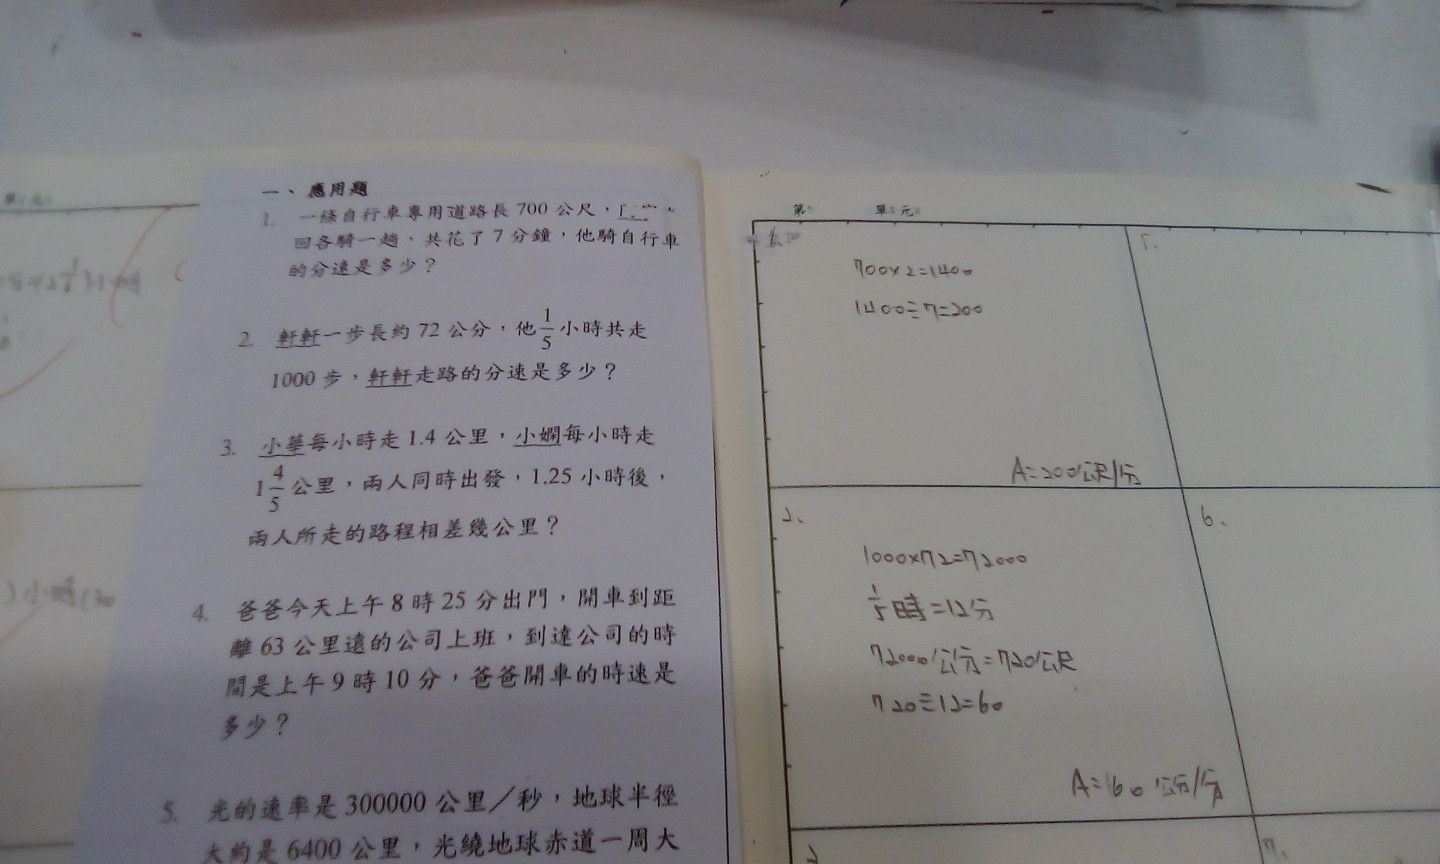 一、應用題
1. 一條自行車專用道路長 700 公尺，
回各騎一趟，共花了 7 分鐘，他騎自行車
的分速是多少？
2. 軒軒一步長約 72 公分，他 1/5 小時共走
1000 步，軒軒走路的分速是多少？
3. 小華每小時走 1.4 公里，小嫻每小時走
1 4/5 公里，兩人同時出發，1.25 小時後，
兩人所走的路程相差幾公里？
4. 爸爸今天上午 8 時 25 分出門，開車到距
離 63 公里遠的公司上班，到達公司的時
間是上午 9 時 10 分，爸爸開車的時速是
多少？
5. 光的速率是 300000 公里／秒，地球半徑
大約是 6400 公里，光繞地球赤道一周大
單元
700×2=1400
1400÷7=200
A=200公尺/分
5.
2、
1000×72=72000
1/5時=12分
72000公分=720公尺
720÷12=60
6、
7.